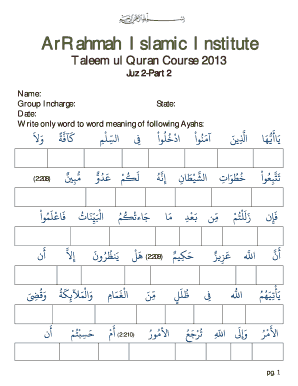 ArRahmah Islamic Institute
Taleem ul Quran Course 2013
Juz 2-Part 2
Name:
Group Incharge: State:
Date:
Write only word to word meaning of following Ayahs:
يَاأَيُّهَا الَّذِينَ آمَنُوا ادْخُلُوا فِي السِّلْمِ كَافَّةً وَلاَ
تَتَّبِعُوا خُطُوَاتِ الشَّيْطَانِ إِنَّهُ لَكُمْ عَدُوٌّ مُبِينٌ (2:208)
فَإِن زَلَلْتُمْ مِن بَعْدِ مَا جَاءَتْكُمُ الْبَيِّنَاتُ فَاعْلَمُوا
أَنَّ اللَّهَ عَزِيزٌ حَكِيمٌ (2:209) هَلْ يَنظُرُونَ إِلاَّ أَن
يَأْتِيَهُمُ اللَّهُ فِي ظُلَلٍ مِنَ الْغَمَامِ وَالْمَلاَئِكَةُ وَقُضِيَ
الأَمْرُ وَإِلَى اللَّهِ تُرْجَعُ الأُمُورُ (2:210) أَمْ حَسِبْتُمْ أَن
pg. 1